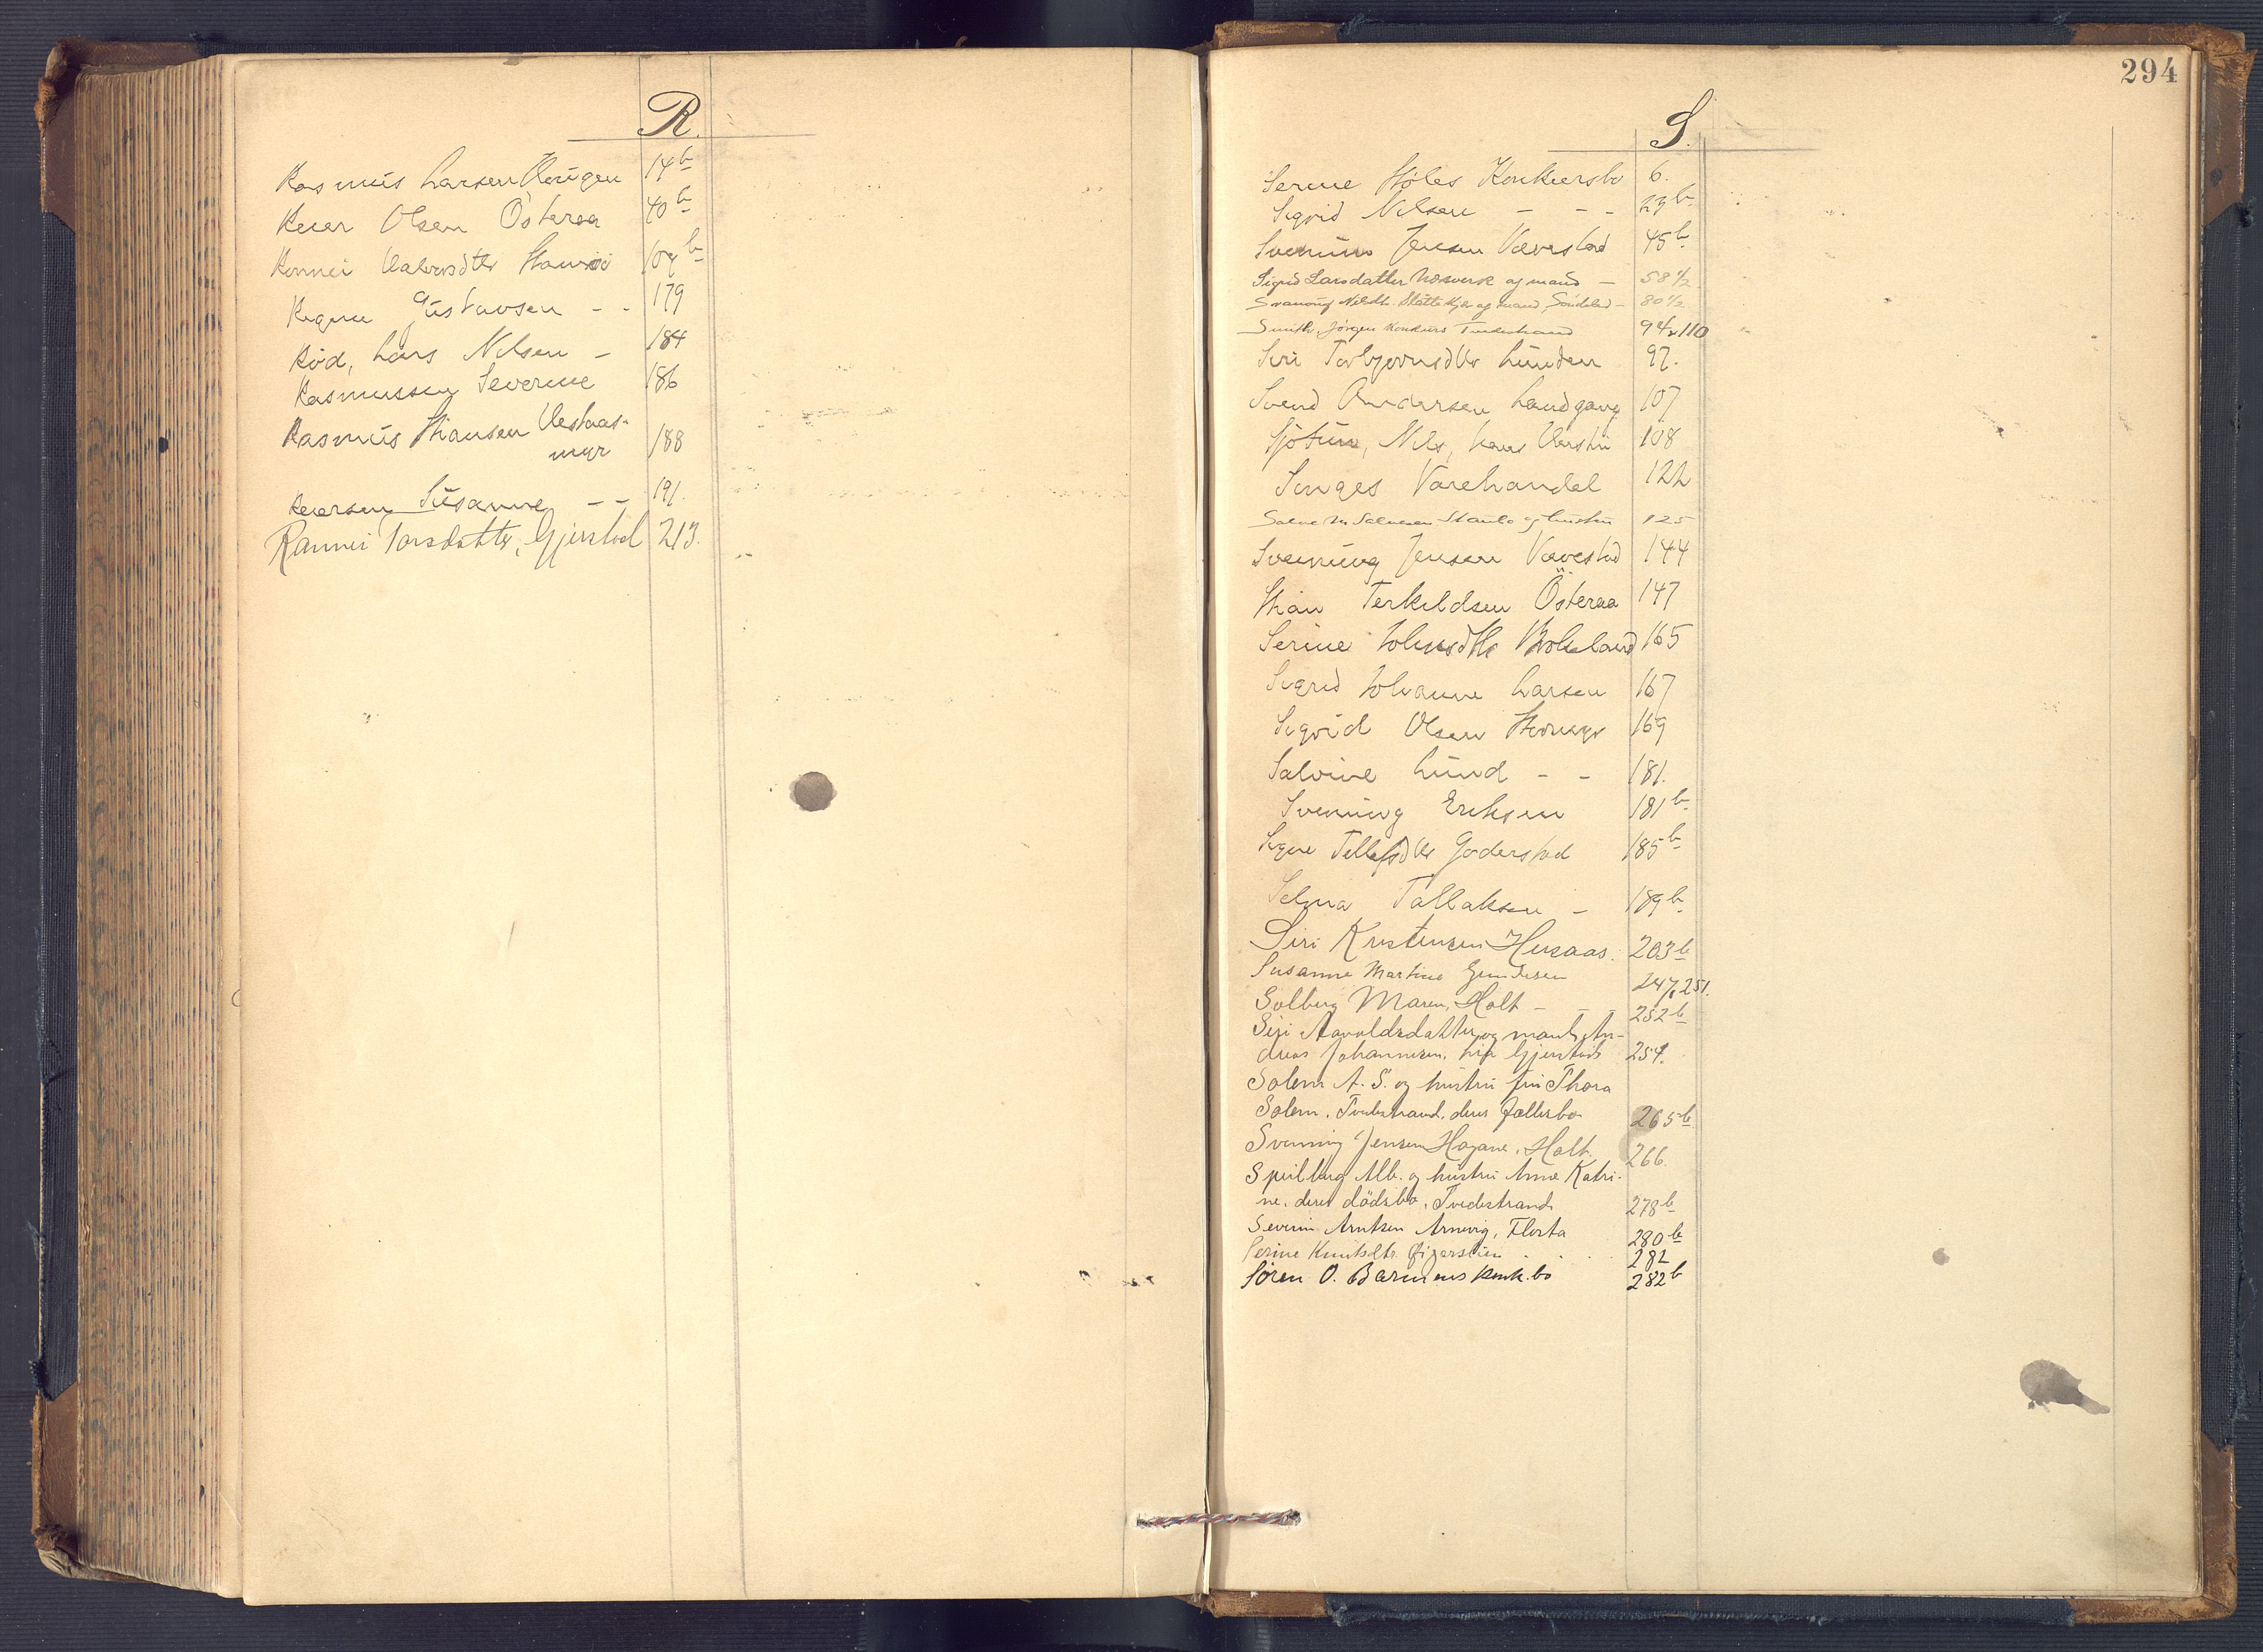 R.
Rasmus Larsen Haugen 14b
Reier Olsen Österaa 40b
Ronnei Halvorsdtr 109b
Regine Gustavsen - - 179
Röd, Lars Nilsen - 184
Rasmussen Severine 186
Rasmus Hansen Vestaas-
myr 188
Reiersen, Susanne - - 191.
Rannei Larsdatter, Gjerstad 213.
294
S.
Serine Höles Konkursbo 6.
Sigvid Nilsen - - - 23b
Svenning Jensen Vævestad 45b
Sigrid Larsdatter Næsverk og mand - 58 1/2
Svanaug Nilsdtr. og mand, Söndeled - 80 1/2
Smith, Jörgen Konkurs Tvedestrand 94 110
Siri Torbjörnsdtr Lunden 97.
Svend Andersen Landgang 107
Sjötun, Nils, hans Hustru 108
Singes Varehandel 122
Salve M Salvesen Staulo og hustru 125
Svenning Jensen Vævestad 144
Stian Terkildsen Österaa 147
Serine Johnsdtr 165
Sigrid Johanne Larsen 167
Sigvid Olsen 169
Salvine Lund - - 181.
Svenning Eriksen 181b
Signe Tellefsdtr Goderstad 185b
Selma Tallaksen - 189b
Siri Kristensen Husaas. 203b
Susanne Martine Gundersen 247, 251.
Solberg Maren, Holt - - - 252b
Siri Aavoldsdatter og mand, An-
dreas Johannesen, Gjerstad 254.
Solem A. S. og hustru fru Thora
Solem, Tvedestrand, deres fællesbo 265b
Svenning Jensen Hagane, Holt. 266.
Speilberg Alb. og hustru Anne Katri-
ne, deres dödsbo, Tvedestrand 278b
Severin Arntsen Arnevig, Flosta 280b
Serine Knutsdtr. . . . 282
Sören O. Barmens konk.bo 282b